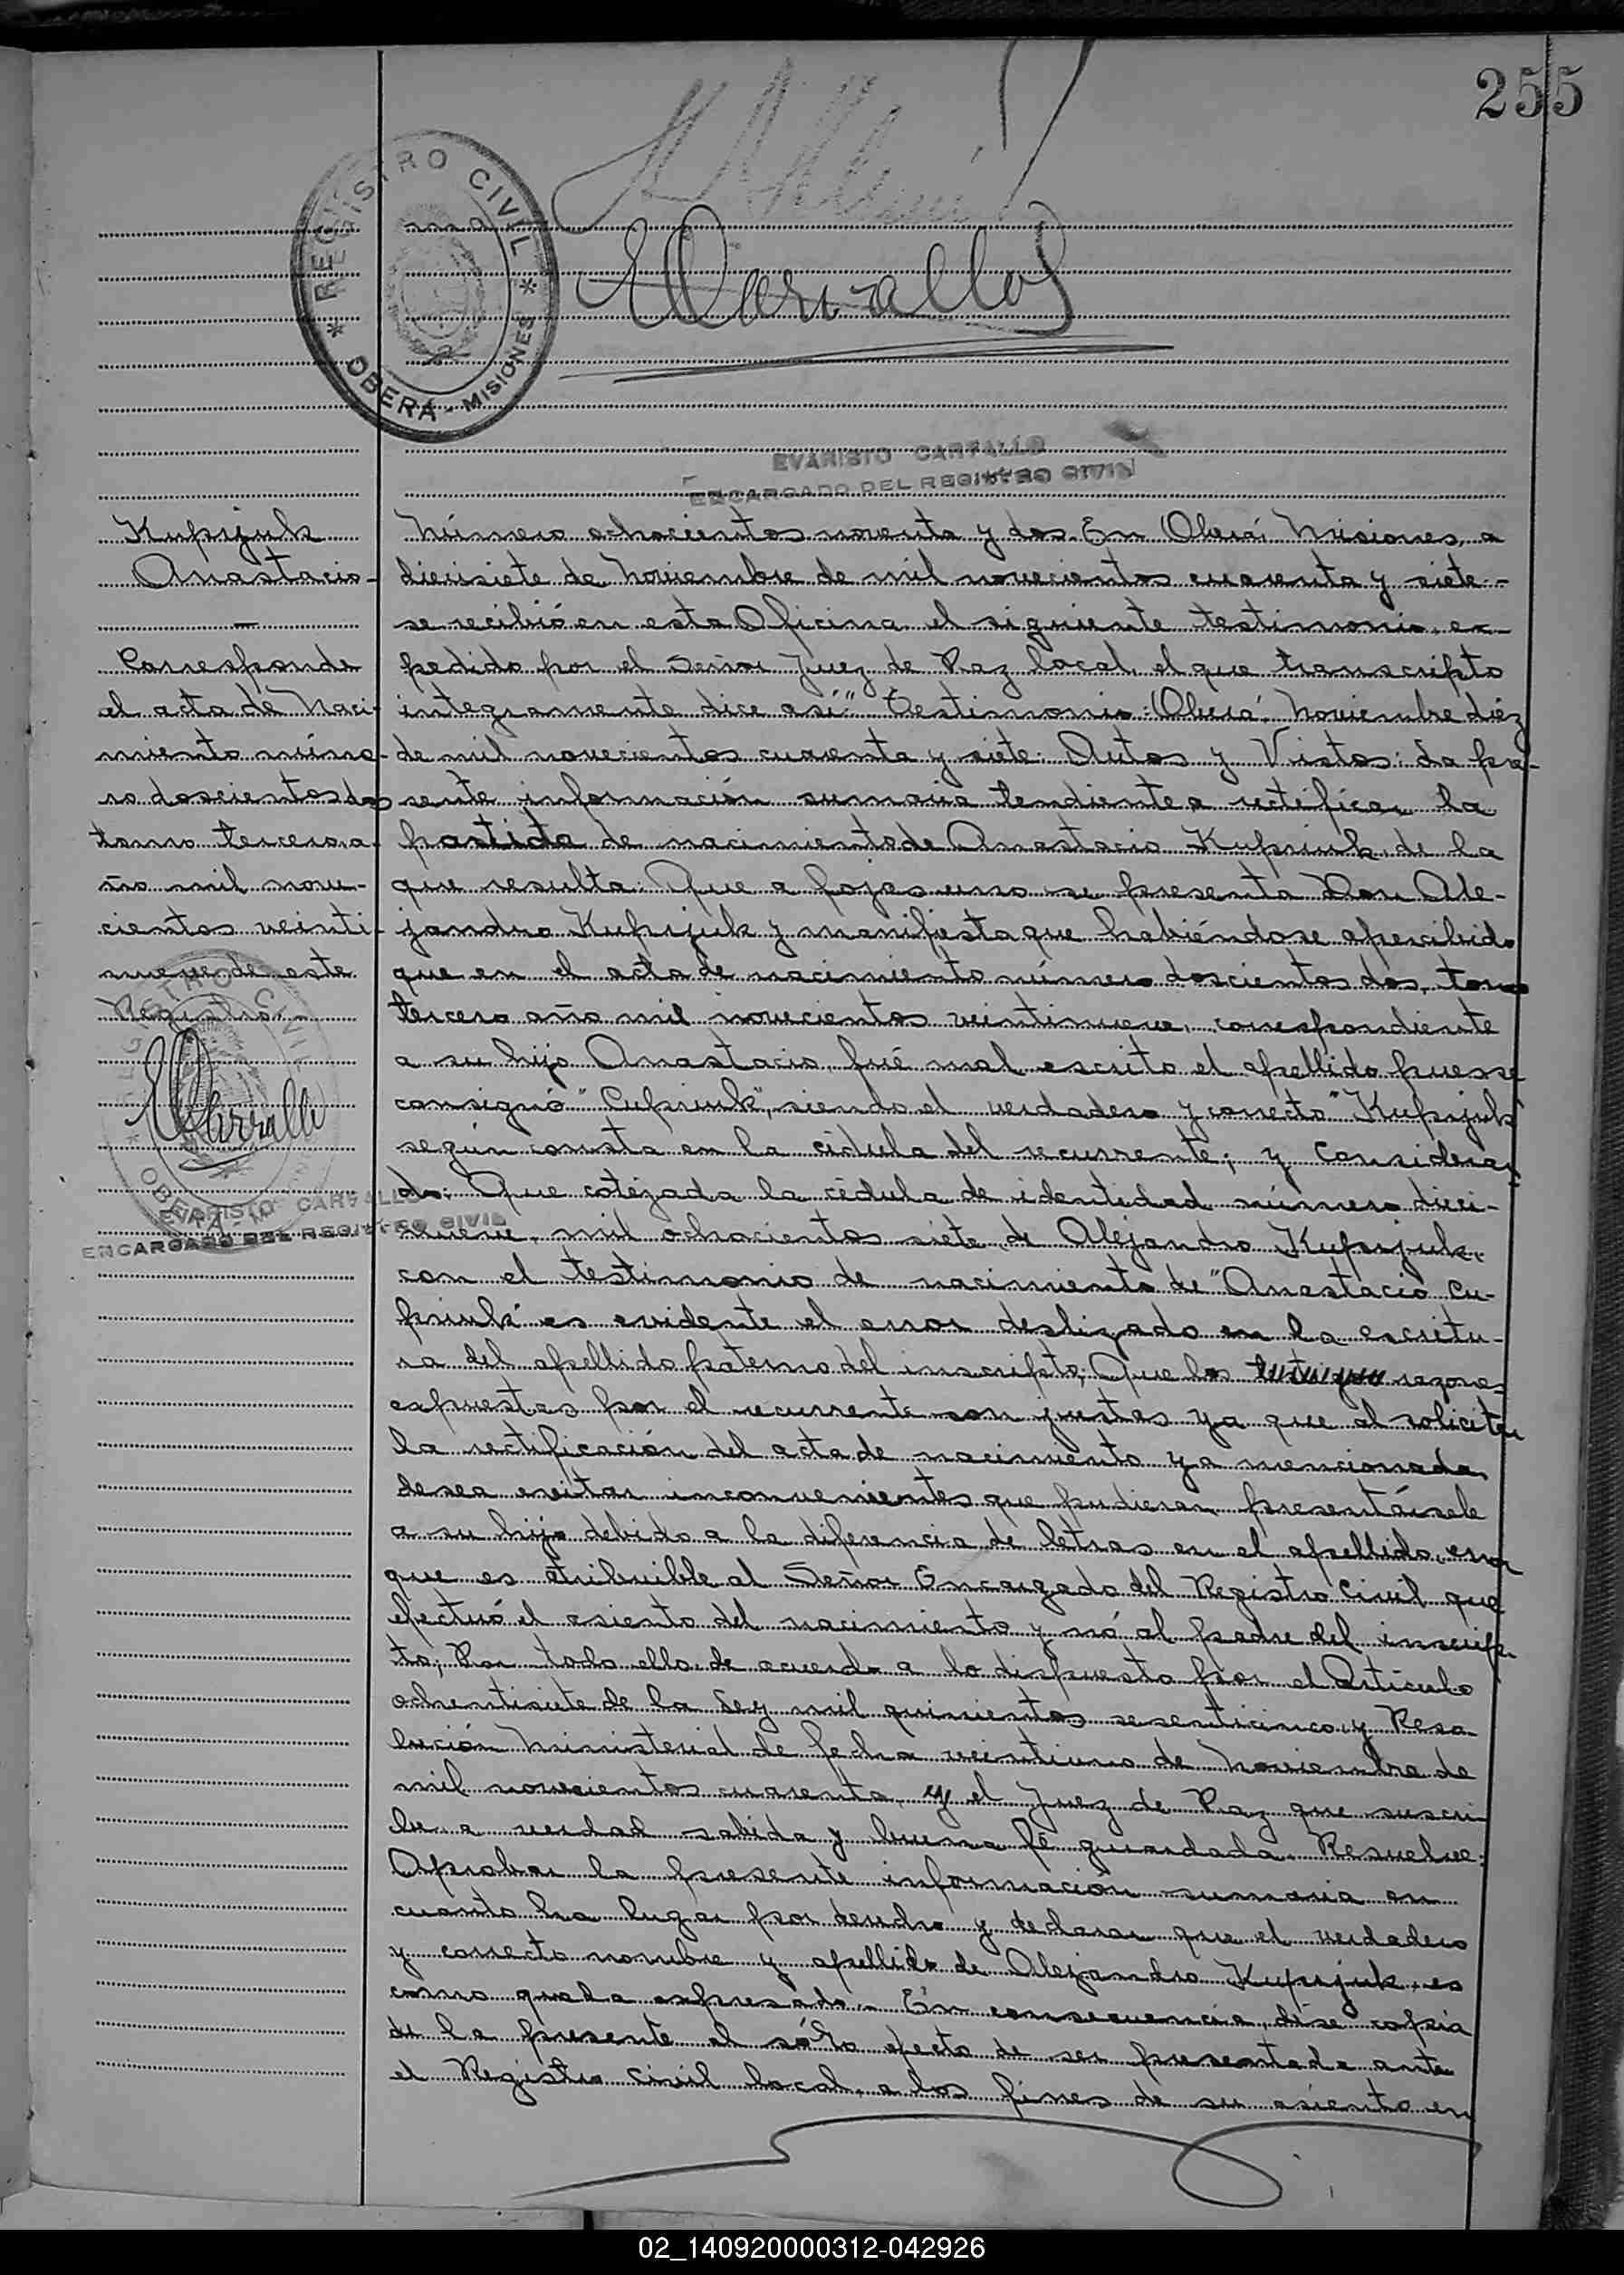 255
REGISTRO CIVIL
* OBERÁ - MISIONES *
ECarvallo
EVARISTO CARVALLO
ENCARGADO DEL REGISTRO CIVIL
Kuprijuk
Anastacio-
—
Corresponde
al acta de Naci-
miento núme-
ro doscientos dos
tomo tercero a-
ño mil nove-
cientos veinti-
nueve de este
Registro.-
ECarvallo
REGISTRO CIVIL
* OBERÁ - MISIONES
EVARISTO CARVALLO
ENCARGADO DEL REGISTRO CIVIL
Número ochocientos noventa y dos. En Oberá, Misiones, a
diecisiete de Noviembre de mil novecientos cuarenta y siete.-
se recibió en esta Oficina el siguiente testimonio, ex-
pedido por el Señor Juez de Paz local, el que transcripto
integramente dice así: "Testimonio: Oberá, Noviembre diéz
de mil novecientos cuarenta y siete. Autos y Vistos: La pre-
sente información sumaria tendiente a rectificar la
partida de nacimiento de Anastacio Kupriuk, de la
que resulta: Que a fojas uno se presenta Don Ale-
jandro Kuprijuk y manifiesta que habiéndose apercibido
que en el acta de nacimiento número doscientos dos, tomo
tercero año mil novecientos veintinueve, correspondiente
a su hijo Anastacio, fué mal escrito el apellido pues se
consignó "Cupriuk", siendo el verdadero y correcto "Kuprijuk"
según consta en la cédula del recurrente; y Consideran-
do: Que cotejada la cédula de identidad número dieci-
nueve mil ochocientos siete de Alejandro Kuprijuk,
con el testimonio de nacimiento de "Anastacio Cu-
priuk" es evidente el error deslizado en la escritu-
ra del apellido paterno del inscripto; Que las razones
expuestas por el recurrente son justas ya que al solicitar
la rectificación del acta de nacimiento ya mencionada,
desea evitar inconvenientes que pudieran presentársele
a su hijo debido a la diferencia de letras en el apellido, error
que es atribuible al Señor Encargado del Registro Civil que
efectuó el asiento del nacimiento y nó al padre del inscrip-
to; Por todo ello, de acuerdo a lo dispuesto por el Artículo
ochentisiete de la Ley mil quinientos sesenticinco y Reso-
lución Ministerial de fecha veintiuno de Noviembre de
mil novecientos cuarenta, y el Juez de Paz que suscri-
be a verdad sabida y buena fé guardada. Resuelve:
Aprobar la presente información sumaria en
cuanto ha lugar por derecho y declarar que el verdadero
y correcto nombre y apellido de Alejandro Kuprijuk, es
como queda expresado.- En consecuencia, dése copia
de la presente al sólo efecto de ser presentada ante
el Registro Civil local, a los fines de su asiento en
02_140920000312-042926